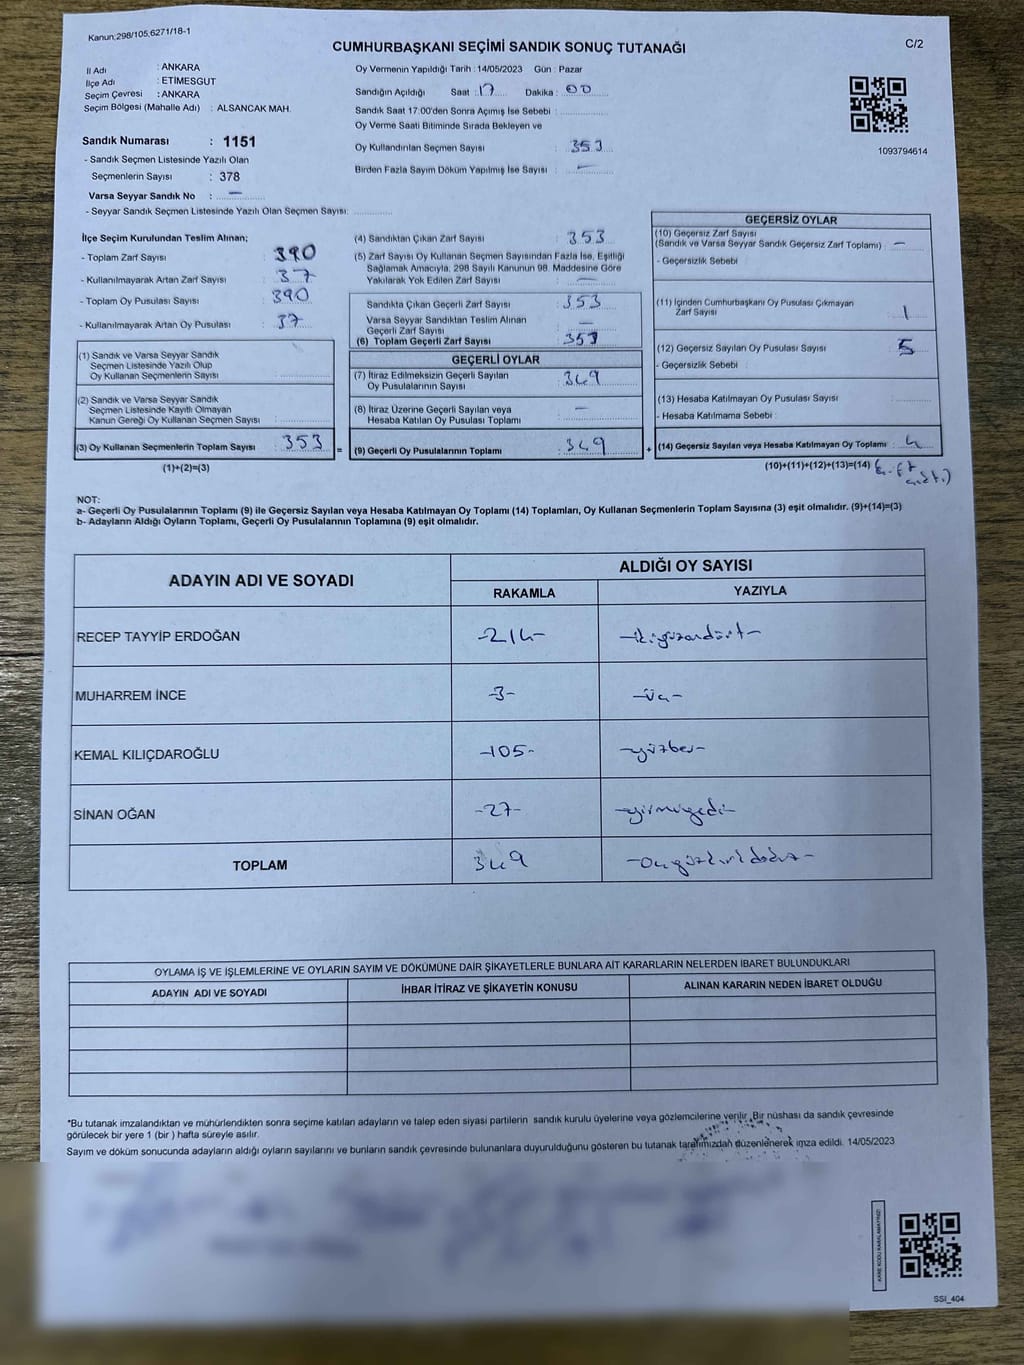 Kanun:298/105,6271/18-1
CUMHURBAŞKANI SEÇİMİ SANDIK SONUÇ TUTANAĞI
C/2
İl Adı : ANKARA
İlçe Adı : ETİMESGUT
Seçim Çevresi : ANKARA
Seçim Bölgesi (Mahalle Adı) : ALSANCAK MAH.
Sandık Numarası : 1151
- Sandık Seçmen Listesinde Yazılı Olan
Seçmenlerin Sayısı : 378
Varsa Seyyar Sandık No : —
- Seyyar Sandık Seçmen Listesinde Yazılı Olan Seçmen Sayısı:
Oy Vermenin Yapıldığı Tarih : 14/05/2023 Gün : Pazar
Sandığın Açıldığı Saat : 17 Dakika : 00
Sandık Saat 17.00'den Sonra Açımış İse Sebebi :
Oy Verme Saati Bitiminde Sırada Bekleyen ve
Oy Kullandırılan Seçmen Sayısı : 353
Birden Fazla Sayım Döküm Yapılmış İse Sayısı : —
1093794614
İlçe Seçim Kurulundan Teslim Alınan;
- Toplam Zarf Sayısı : 390
- Kullanılmayarak Artan Zarf Sayısı : 37
- Toplam Oy Pusulası Sayısı : 390
- Kullanılmayarak Artan Oy Pusulası : 37
(1) Sandık ve Varsa Seyyar Sandık
Seçmen Listesinde Yazılı Olup
Oy Kullanan Seçmenlerin Sayısı :
(2) Sandık ve Varsa Seyyar Sandık
Seçmen Listesinde Kayıtlı Olmayan
Kanun Gereği Oy Kullanan Seçmen Sayısı :
(3) Oy Kullanan Seçmenlerin Toplam Sayısı : 353 =
(1)+(2)=(3)
(4) Sandıktan Çıkan Zarf Sayısı : 353
(5) Zarf Sayısı Oy Kullanan Seçmen Sayısından Fazla İse, Eşitliği
Sağlamak Amacıyla, 298 Sayılı Kanunun 98. Maddesine Göre
Yakılarak Yok Edilen Zarf Sayısı : —
Sandıkta Çıkan Geçerli Zarf Sayısı : 353
Varsa Seyyar Sandıktan Teslim Alınan
Geçerli Zarf Sayısı : —
(6) Toplam Geçerli Zarf Sayısı : 353
GEÇERLİ OYLAR
(7) İtiraz Edilmeksizin Geçerli Sayılan
Oy Pusulalarının Sayısı : 349
(8) İtiraz Üzerine Geçerli Sayılan veya
Hesaba Katılan Oy Pusulası Toplamı : —
(9) Geçerli Oy Pusulalarının Toplamı : 349 +
GEÇERSİZ OYLAR
(10) Geçersiz Zarf Sayısı
(Sandık ve Varsa Seyyar Sandık Geçersiz Zarf Toplamı) : —
- Geçersizlik Sebebi :
(11) İçinden Cumhurbaşkanı Oy Pusulası Çıkmayan
Zarf Sayısı : 1
(12) Geçersiz Sayılan Oy Pusulası Sayısı : 5
- Geçersizlik Sebebi :
(13) Hesaba Katılmayan Oy Pusulası Sayısı :
- Hesaba Katılmama Sebebi :
(14) Geçersiz Sayılan veya Hesaba Katılmayan Oy Toplamı : 4
(10)+(11)+(12)+(13)=(14)
NOT:
a- Geçerli Oy Pusulalarının Toplamı (9) ile Geçersiz Sayılan veya Hesaba Katılmayan Oy Toplamı (14) Toplamları, Oy Kullanan Seçmenlerin Toplam Sayısına (3) eşit olmalıdır. (9)+(14)=(3)
b- Adayların Aldığı Oyların Toplamı, Geçerli Oy Pusulalarının Toplamına (9) eşit olmalıdır.
ADAYIN ADI VE SOYADI
ALDIĞI OY SAYISI
RAKAMLA YAZIYLA
RECEP TAYYİP ERDOĞAN -214- -ikiyüzondört-
MUHARREM İNCE -3- -üç-
KEMAL KILIÇDAROĞLU -105- -yüzbeş-
SİNAN OĞAN -27- -yirmiyedi-
TOPLAM 349 -üçyüzkırkdokuz-
OYLAMA İŞ VE İŞLEMLERİNE VE OYLARIN SAYIM VE DÖKÜMÜNE DAİR ŞİKAYETLERLE BUNLARA AİT KARARLARIN NELERDEN İBARET BULUNDUKLARI
ADAYIN ADI VE SOYADI İHBAR İTİRAZ VE ŞİKAYETİN KONUSU ALINAN KARARIN NEDEN İBARET OLDUĞU
*Bu tutanak imzalandıktan ve mühürlendikten sonra seçime katılan adayların ve talep eden siyasi partilerin sandık kurulu üyelerine veya gözlemcilerine verilir. Bir nüshası da sandık çevresinde
görülecek bir yere 1 (bir ) hafta süreyle asılır.
Sayım ve döküm sonucunda adayların aldığı oyların sayılarını ve bunların sandık çevresinde bulunanlara duyurulduğunu gösteren bu tutanak tarafımızdan düzenlenerek imza edildi. 14/05/2023
KARE KODU KARALAMAYINIZ!
SSI_404